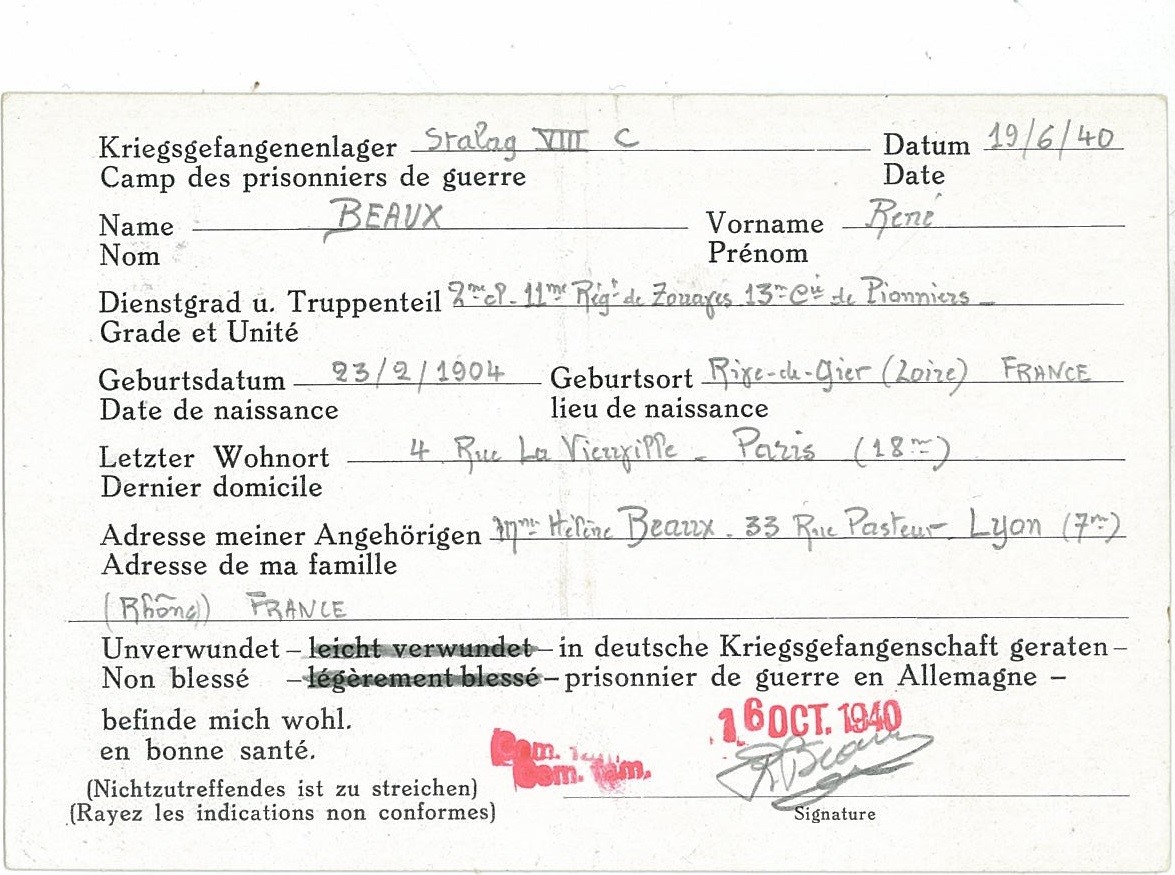 Kriegsgefangenenlager Stalag VIII C Datum 19/6/40
Camp des prisonniers de guerre Date
Name BEAUX Vorname René
Nom Prénom
Dienstgrad u. Truppenteil 2me cl. 11me Régt de Zouaves 13me Cie de Pionniers
Grade et Unité
Geburtsdatum 23/2/1904 Geburtsort Rive-de-Gier (Loire) FRANCE
Date de naissance lieu de naissance
Letzter Wohnort 4 Rue La Vieuville - Paris (18me)
Dernier domicile
Adresse meiner Angehörigen Mme Hélène Beaux - 33 Rue Pasteur - Lyon (7me)
Adresse de ma famille
(Rhône) FRANCE
Unverwundet – leicht verwundet – in deutsche Kriegsgefangenschaft geraten –
Non blessé – légèrement blessé – prisonnier de guerre en Allemagne –
befinde mich wohl. 16 OCT. 1940
en bonne santé. Com. fam. RBeaux
Com. fam.
(Nichtzutreffendes ist zu streichen)
(Rayez les indications non conformes) Signature